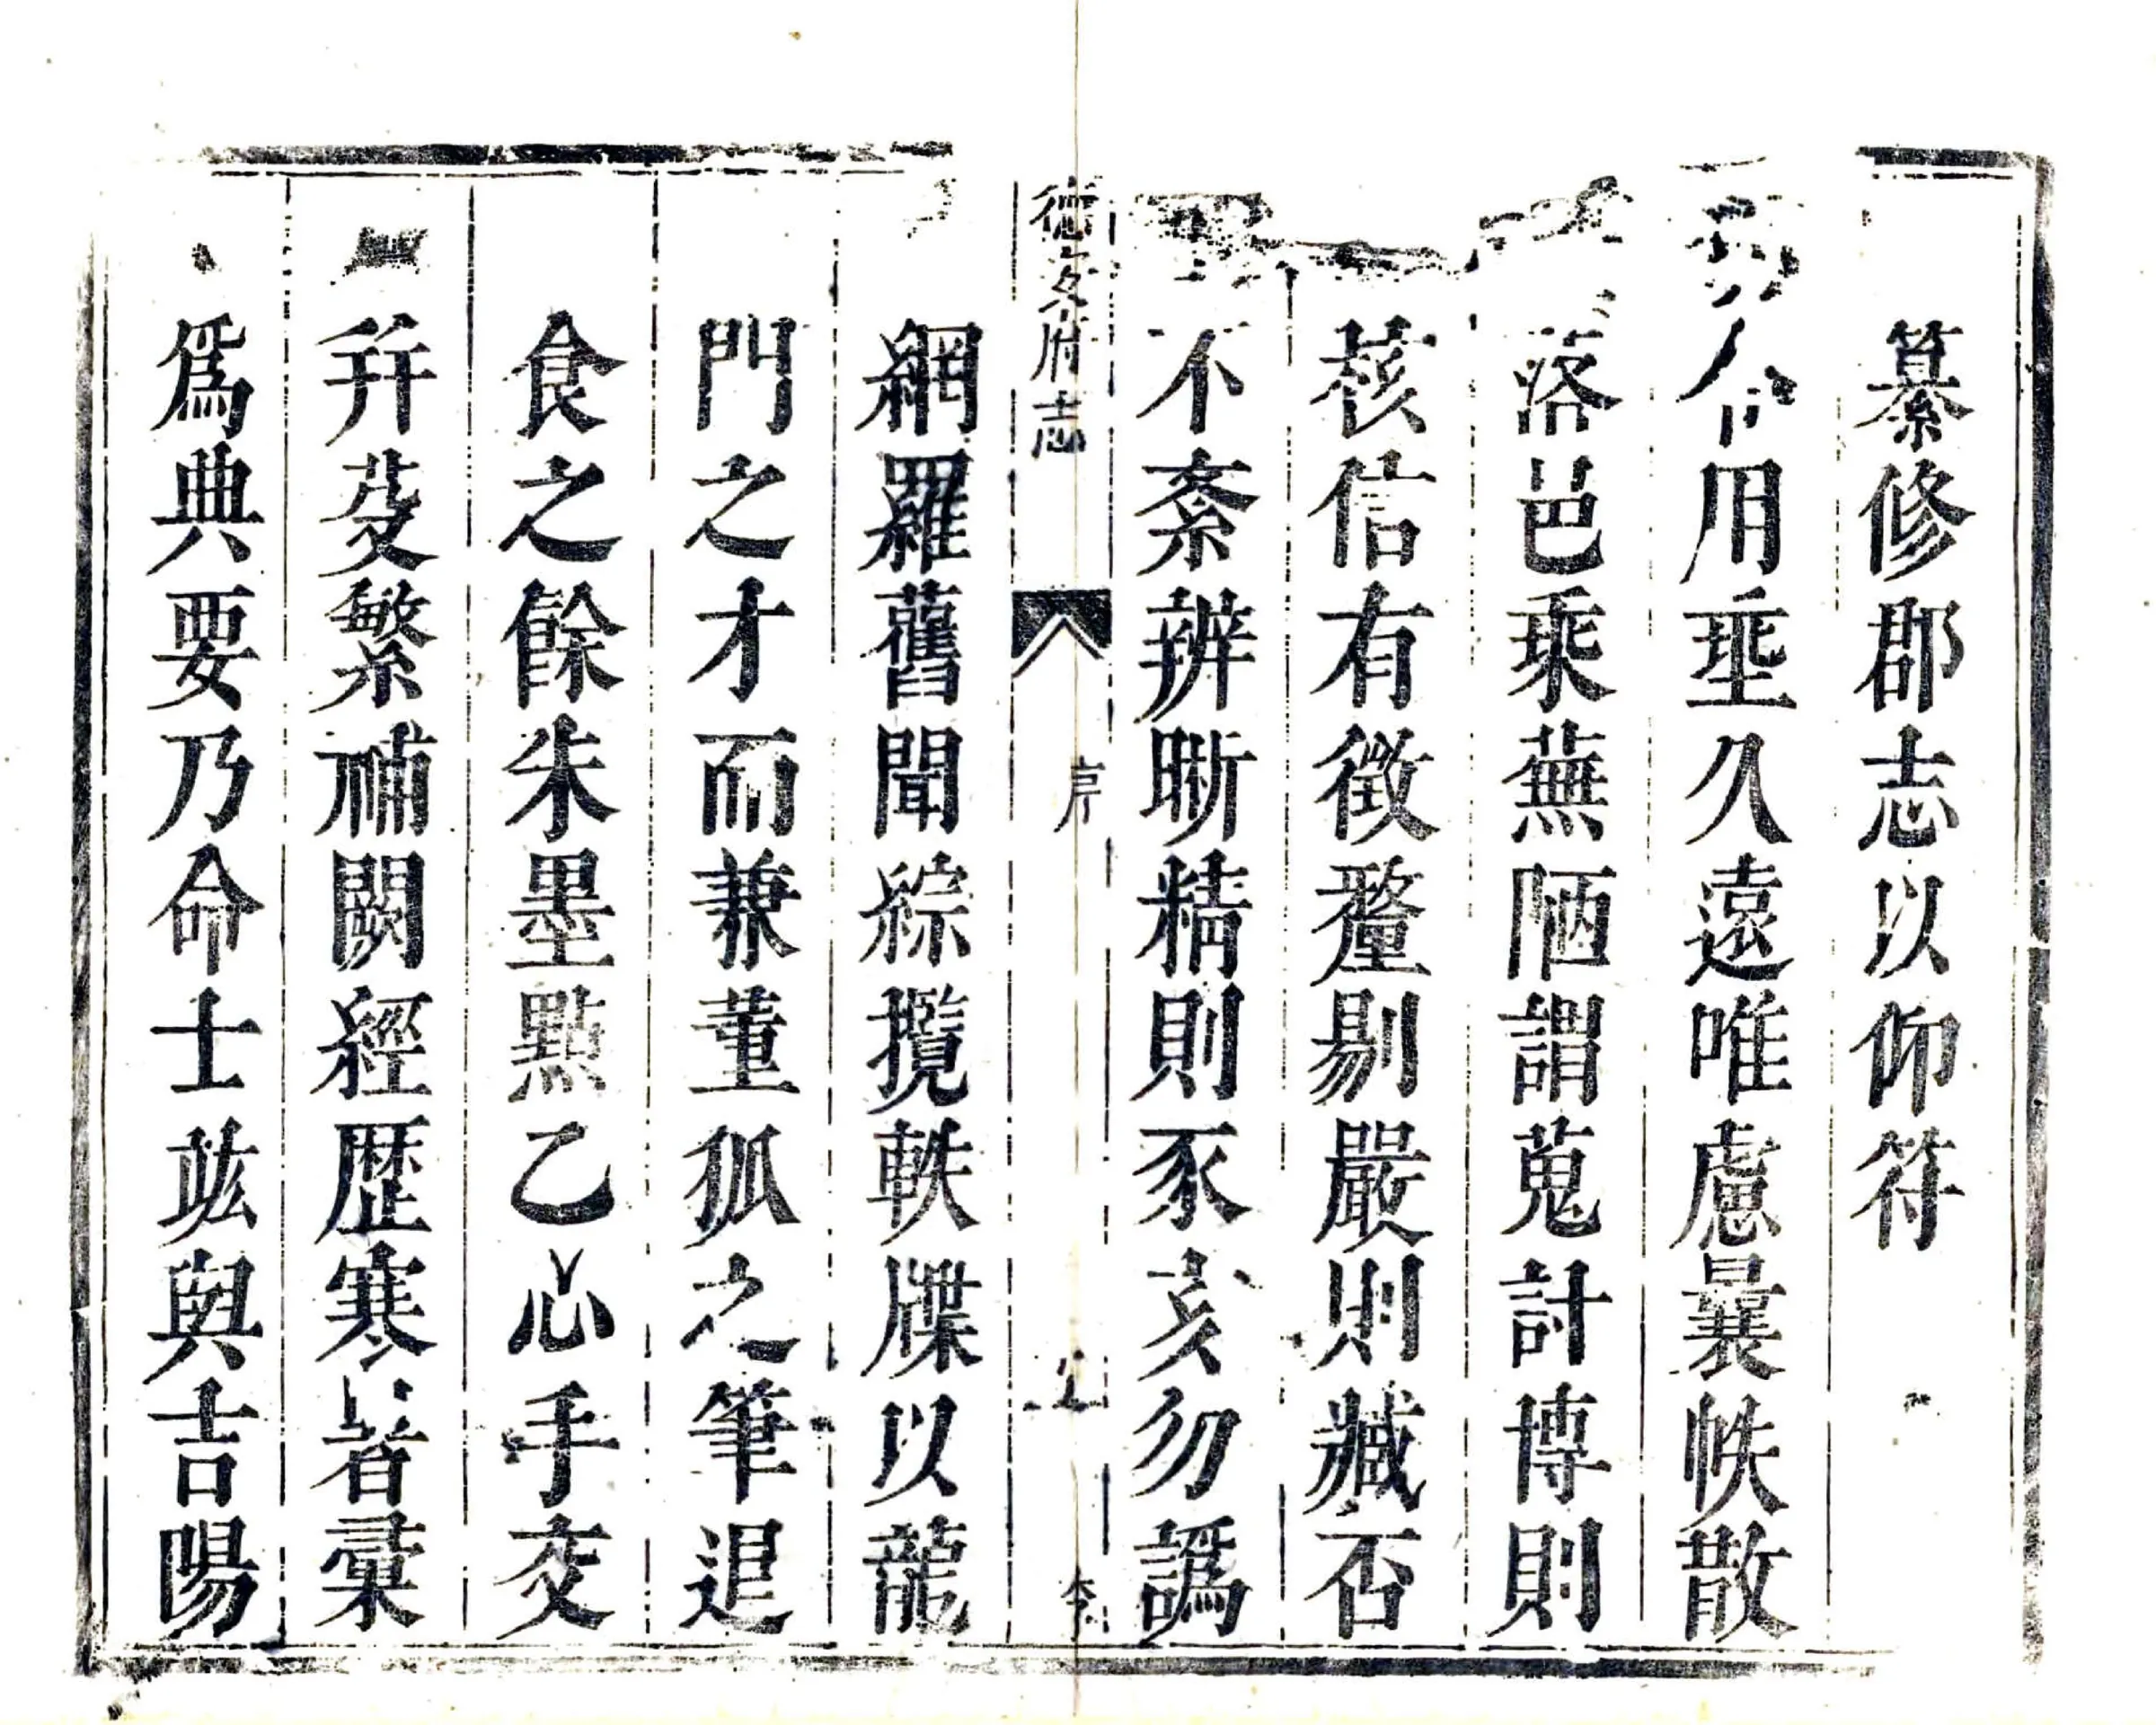 纂修郡志以仰符
用垂久遠唯慮曩帙散
落邑乘蕪陋謂蒐計博則
核信有徵釐剔嚴則臧否
不紊辨晰精則豕亥勿譌
德安府志 序
網羅舊聞綜攬軼牒以龍
門之才而兼董狐之筆退
食之餘朱墨點乙心手交
幷芟繁補闕經歷寒暑彙
爲典要乃命士竑與吉陽